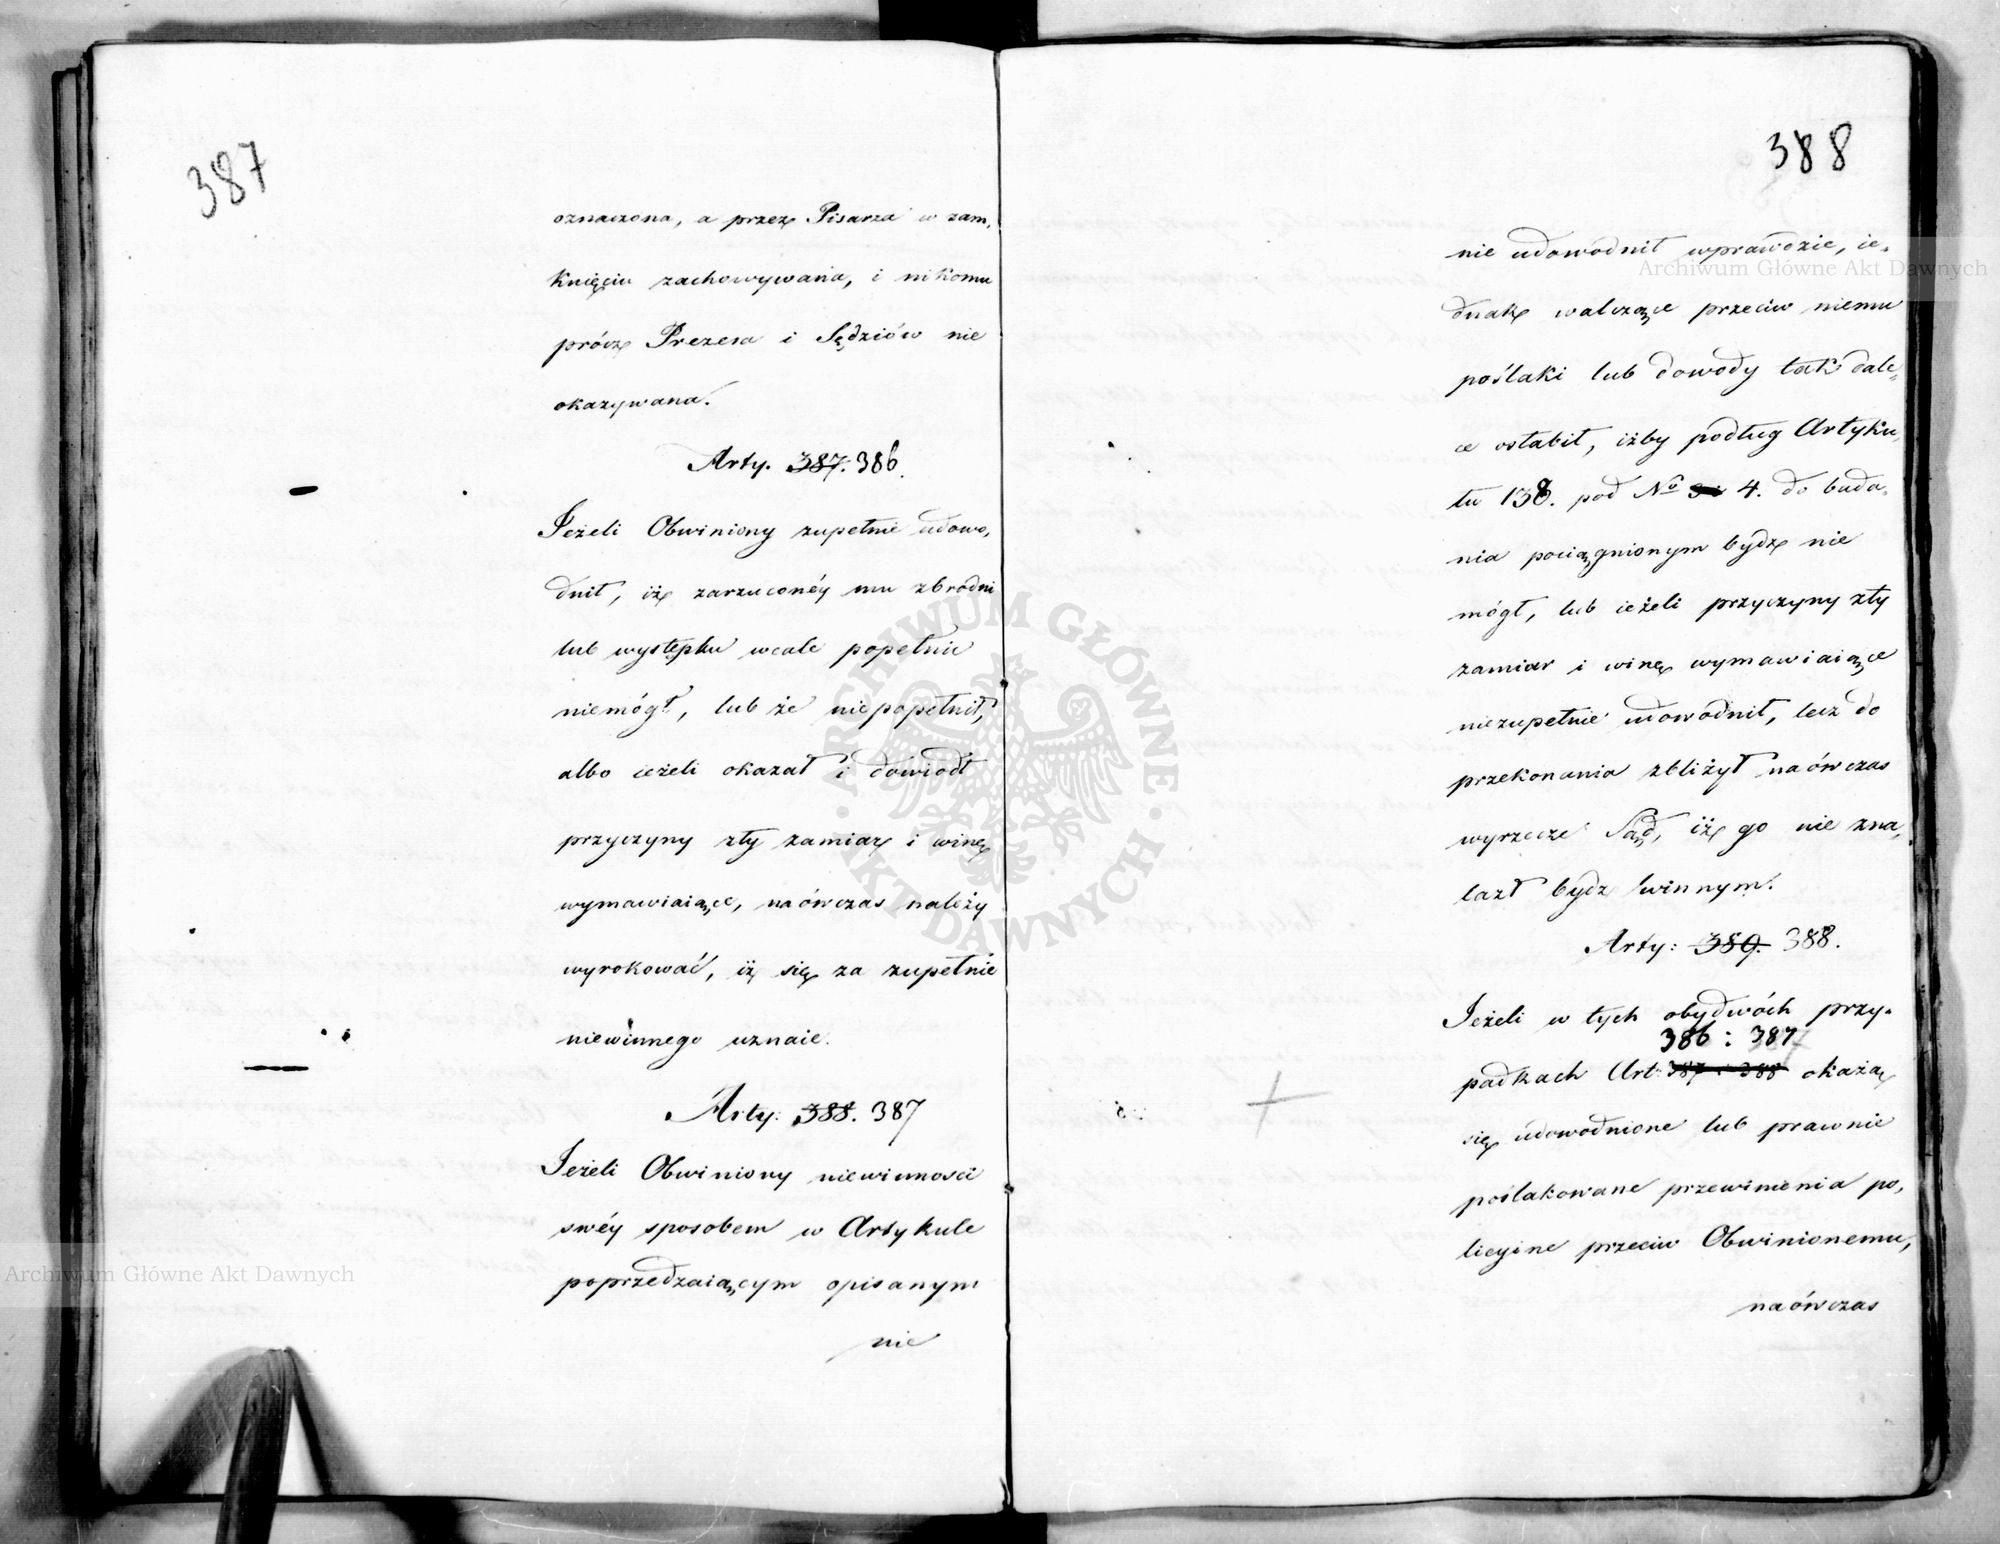 387
oznaczona, a przez Pisarza w zam,
knięciu zachowywana, i nikomu
prócz Prezesa i Sędziów nie
okazywana.
Arty. 387. 386.
Jeżeli Obwiniony zupełnie udowo,
dnił, iż zarzuconéy mu zbrodni
lub występku wcale popełnić
niemógł, lub że niepopełnił,
albo ieżeli okazał i dowiodł
przyczyny zły zamiar i winę
wymawiaiące, naówczas należy
wyrokować, iż się za zupełnie
niewinnego uznaie.
Arty: 388. 387
Jeżeli Obwiniony niewinnosci
swéy sposobem w Artykule
poprzedzaiącym opisanym
nie
388
nie udowodnił wprawdzie, ie,
dnak walczące przeciw niemu
poślaki lub dowody tak dale,
ce osłabił, iżby podług Artyku,
łu 138. pod No 4. do bada,
nia pociągnionym bydź nie
mógł, lub ieżeli przyczyny zły
zamiar i winę wymawiaiące
niezupełnie udowodnił, lecz do
przekonania zbliżył naówczas
wyrzecze Sąd, iż go nie zna,
lazł bydz winnym.
Arty: 389. 388.
Jeżeli w tych obydwóch przy,
386 : 387
padkach Art: 387 i 388 okażą
się udowodnione lub prawnie
poślakowane przewinienia po,
licyine przeciw Obwinionemu,
naówczas
Archiwum Główne Akt Dawnych
Archiwum Główne Akt Dawnych
ARCHIWUM GŁÓWNE · AKT DAWNYCH ·